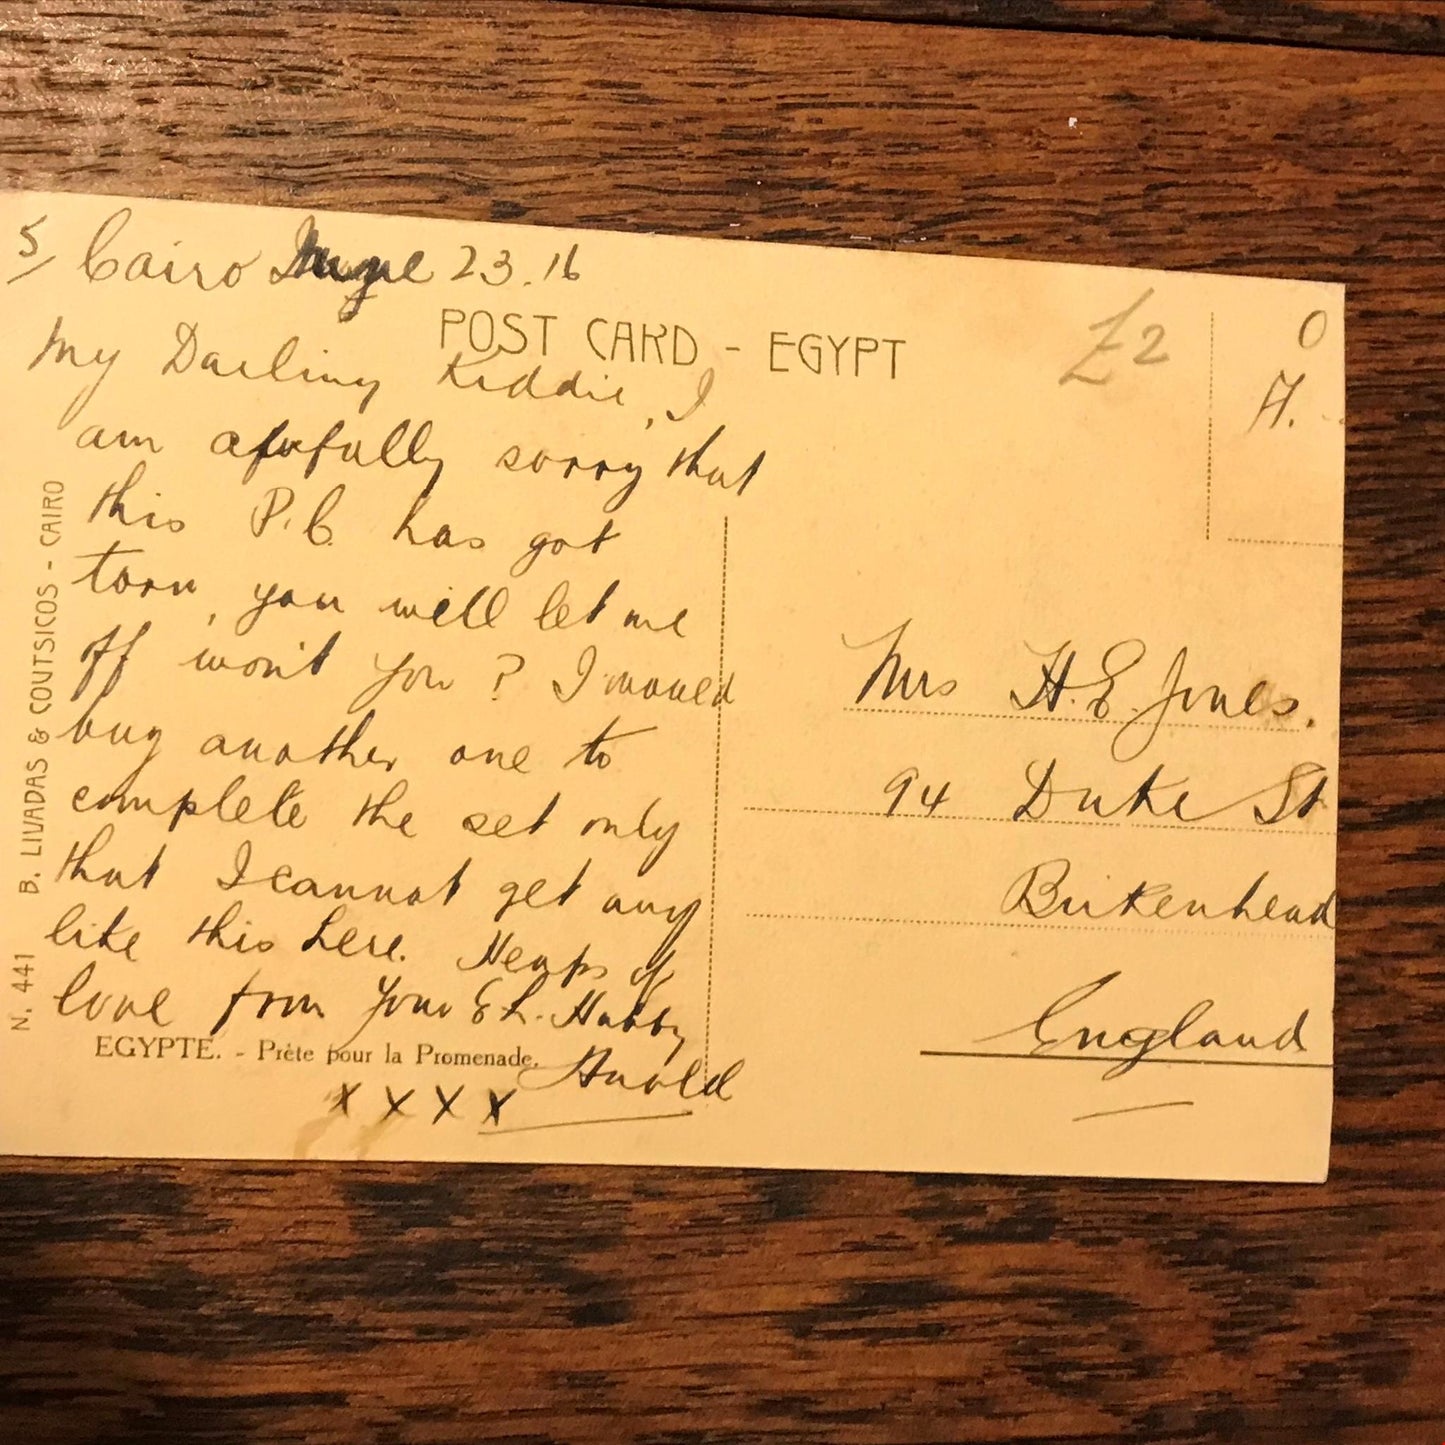 5/ Cairo June 23.16
POST CARD - EGYPT
My Darling Kiddie, I
am awfully sorry that
this P.C. has got
torn, you will let me
off won't you? I would
buy another one to
complete the set only
that I cannot get any
like this here. Heaps of
love from your E L. Hubby
Arnold
EGYPTE. - Prète pour la Promenade.
x x x x
N. 441 B. LIVADAS & COUTSICOS - CAIRO
£2
O
A.
Mrs H.E. Jones.
94 Duke St
Birkenhead
England